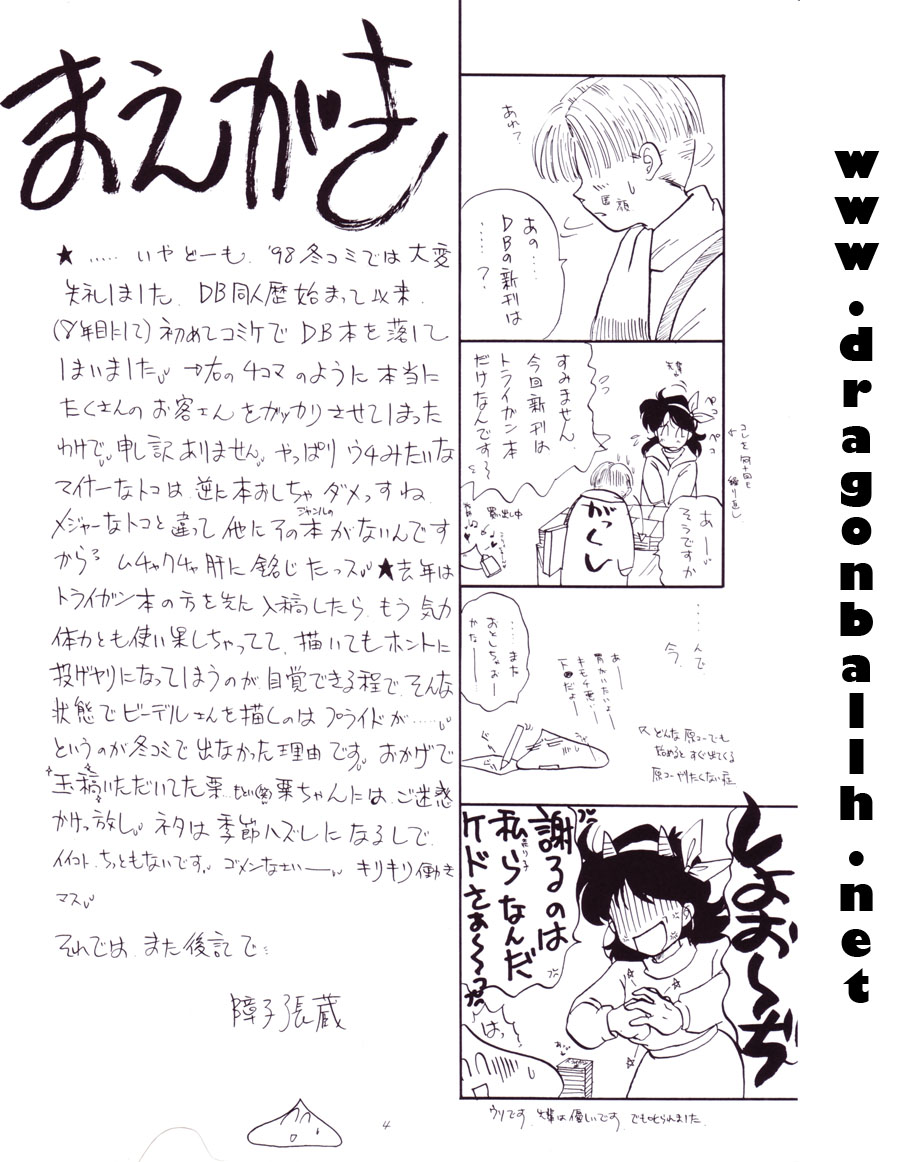 まえがき
★‥‥‥いやどーも、'98冬コミでは大変
失礼しました。DB同人歴始まって以来、
(8年目にして)初めてコミケでDB本を落して
しまいました。→右の4コマのように本当に
たくさんのお客さんをガッカリさせてしまった
わけで、申し訳ありません。やっぱりウチみたいな
マイナーなトコは、逆に本おしちゃダメっすね、
メジャーなトコと違って他にそのジャンルの本がないんです
から。ムチャクチャ肝に銘じたっス。★去年は
トライガン本の方を先に入稿したら、もう気力
体力とも使い果しちゃってて、描いてもホントに
投げヤリになってしまうのが自覚できる程で、そんな
状態でビーデルさんを描くのはプライドが‥‥‥。
というのが冬コミで出なかった理由です。おかげで
玉稿いただいてた栗 栗ちゃんには、ご迷惑
かけっ放し。ネタは季節ハズレになるしで、
イイコトちっともないです。ゴメンなさいー。キリキリ働き
マス。
それでは、また後記で
障子張蔵
4
あれ?
あの‥‥
DBの新刊は
‥‥‥?
すみません
今回新刊は
トライガン本
だけなんです〜
ペコ
ペコ
コレを何十回も
繰り返し
あ――
そうですか
がっくし
買い出し中
‥‥んで
今、
‥‥‥また
おとしちゃおー
かな―――
あ――
胃がいたいよー
キモチ悪いー
下痢だよー
どんな原コーでも
始めるとすぐ出てくる
原コーやりたくない症
しょお〜ぢ
謝るのは
私らなんだ
ケドさぁ〜〜っ
はっ
ウソです、先輩は優しいです。でも叱られました。
www.dragonballh.net